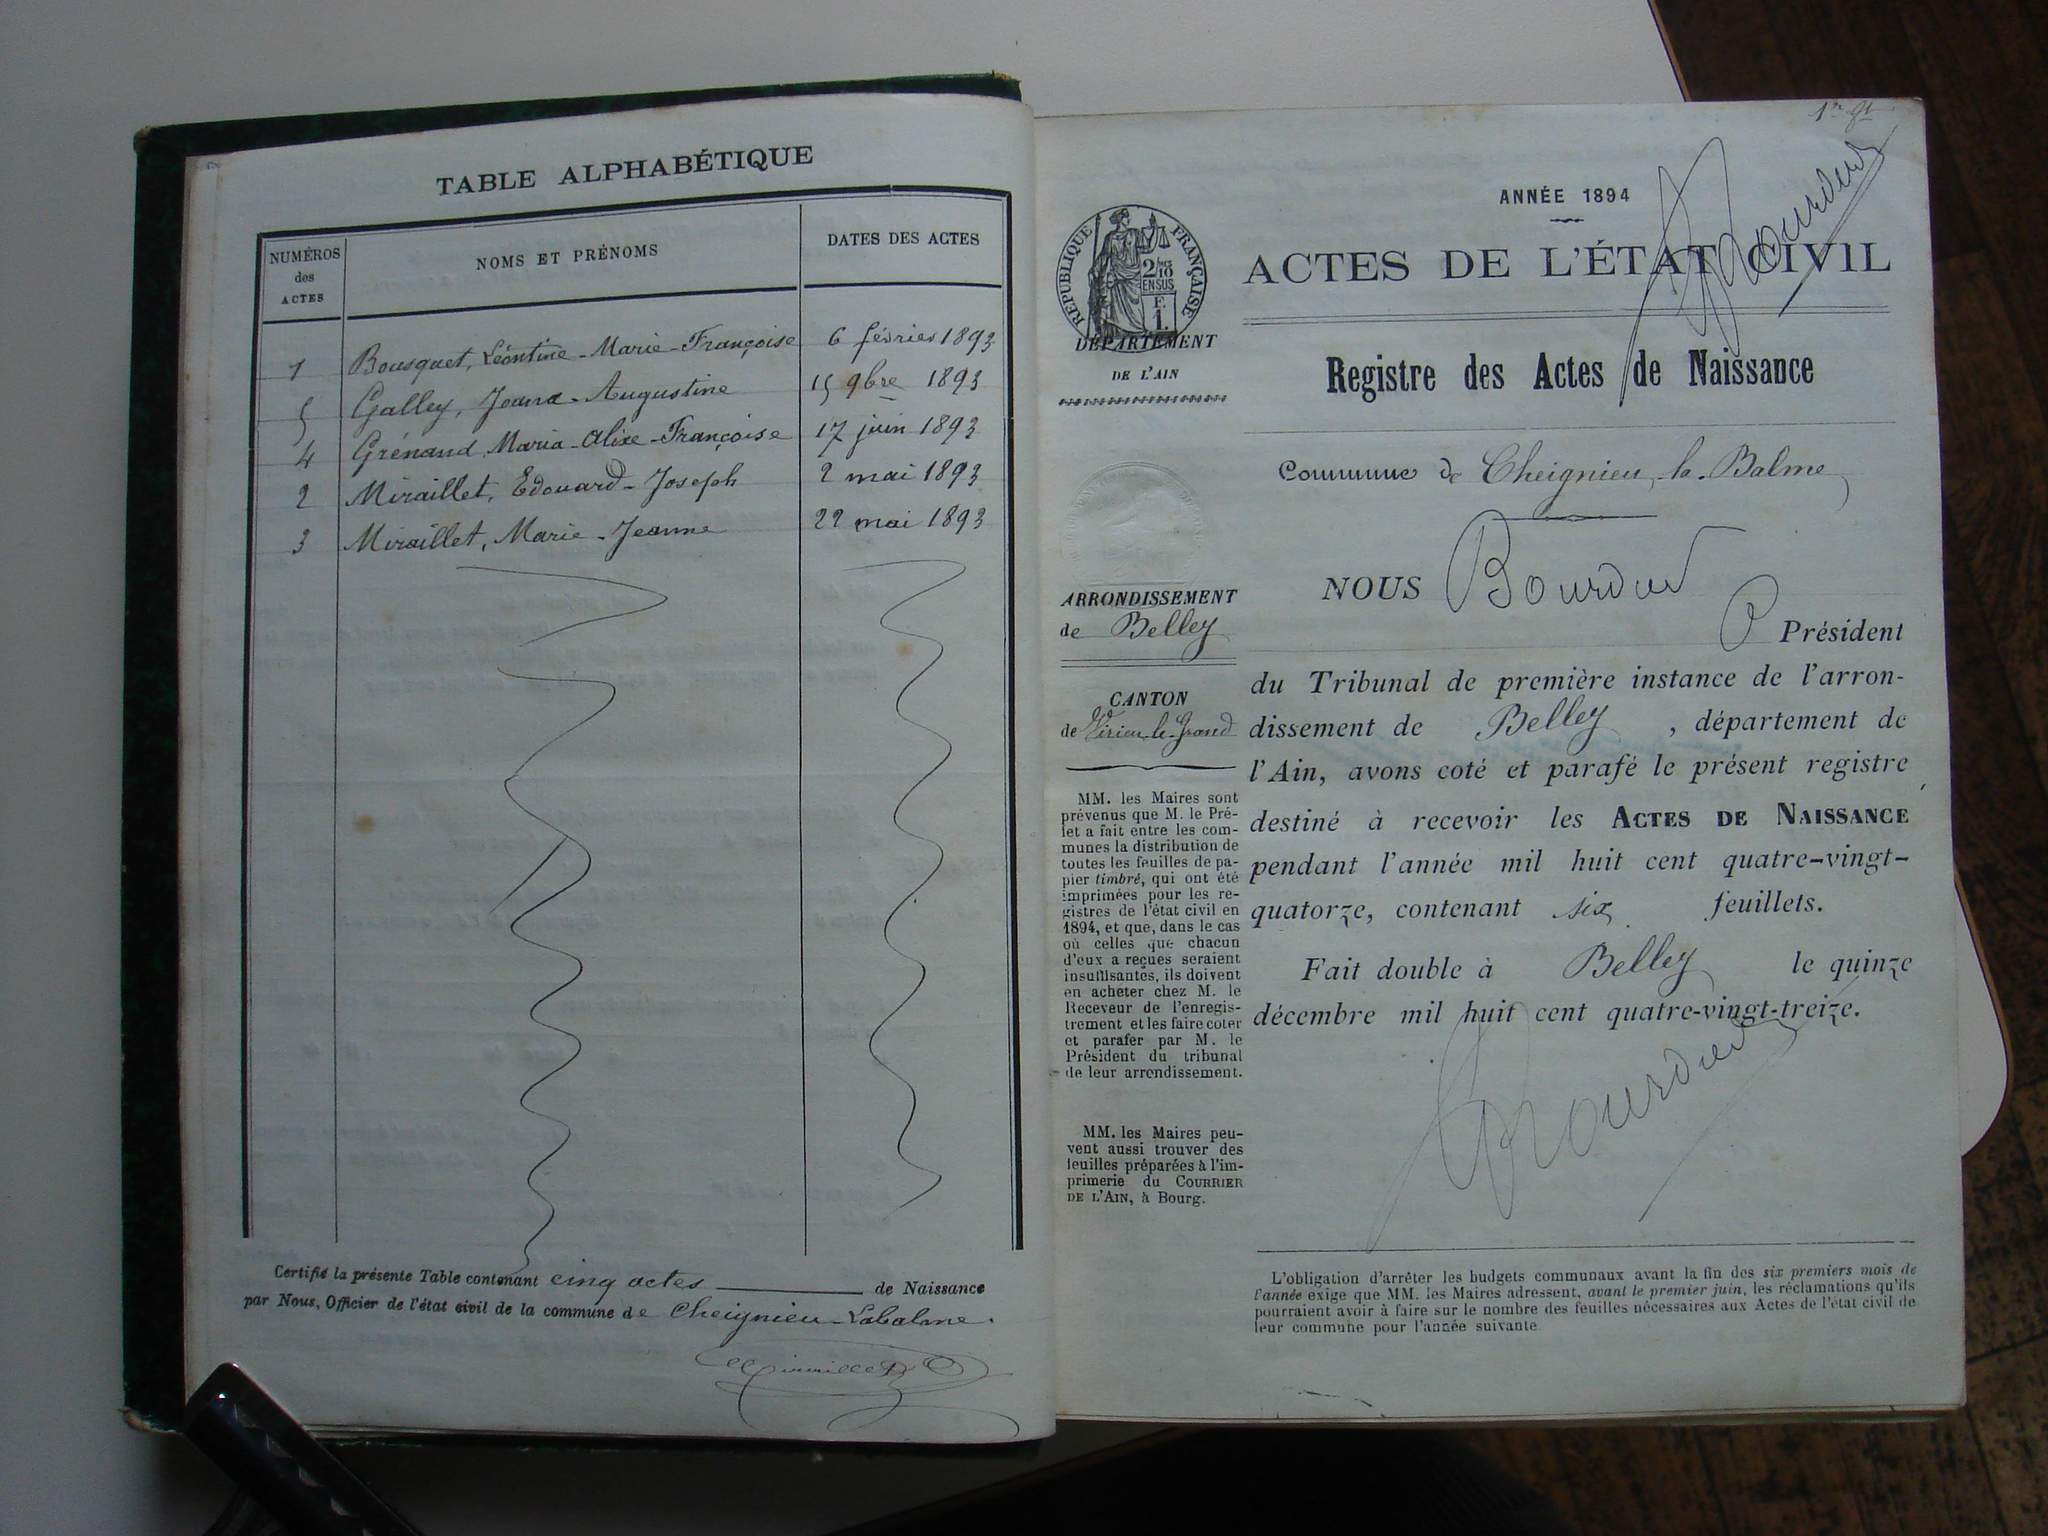 TABLE ALPHABÉTIQUE
NUMÉROS des ACTES
NOMS ET PRÉNOMS
DATES DES ACTES
1 Bousquet, Léontine-Marie-Françoise 6 février 1893
5 Galley, Joana-Augustine 15 9bre 1893
4 Grénand, Maria-Alixe-Françoise 17 juin 1893
2 Miraillet, Edouard-Joseph 2 mai 1893
3 Miraillet, Marie-Jeanne 22 mai 1893
Certifié la présente Table contenant cinq actes de Naissance
par Nous, Officier de l'état civil de la commune de Cheignieu-Labalme.
Miraillet
ANNÉE 1894
Bourdin
ACTES DE L'ÉTAT CIVIL
RÉPUBLIQUE FRANÇAISE
2/10 EN SUS
F. 1.
DÉPARTEMENT
DE L'AIN
Registre des Actes de Naissance
Commune de Cheignieu-la-Balme
NOUS Bourdin
ARRONDISSEMENT
de Belley
CANTON
de Virieu-le-Grand
MM. les Maires sont
prévenus que M. le Pré-
fet a fait entre les com-
munes la distribution de
toutes les feuilles de pa-
pier timbré, qui ont été
imprimées pour les re-
gistres de l'état civil en
1894, et que, dans le cas
où celles que chacun
d'eux a reçues seraient
insuffisantes, ils doivent
en acheter chez M. le
Receveur de l'enregis-
trement et les faire coter
et parafer par M. le
Président du tribunal
de leur arrondissement.
MM. les Maires peu-
vent aussi trouver des
feuilles préparées à l'im-
primerie du COURRIER
DE L'AIN, à Bourg.
Président
du Tribunal de première instance de l'arron-
dissement de Belley, département de
l'Ain, avons coté et parafé le présent registre
destiné à recevoir les ACTES DE NAISSANCE
pendant l'année mil huit cent quatre-vingt-
quatorze, contenant six feuillets.
Fait double à Belley le quinze
décembre mil huit cent quatre-vingt-treize.
Bourdin
L'obligation d'arrêter les budgets communaux avant la fin des six premiers mois de
l'année exige que MM. les Maires adressent, avant le premier juin, les réclamations qu'ils
pourraient avoir à faire sur le nombre des feuilles nécessaires aux Actes de l'état civil de
leur commune pour l'année suivante